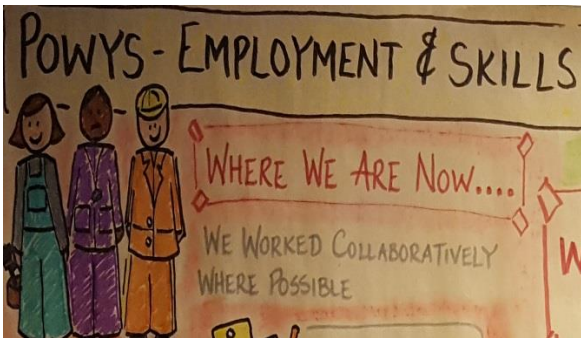 POWYS - EMPLOYMENT & SKILLS
WHERE WE ARE NOW....
WE WORKED COLLABORATIVELY
WHERE POSSIBLE